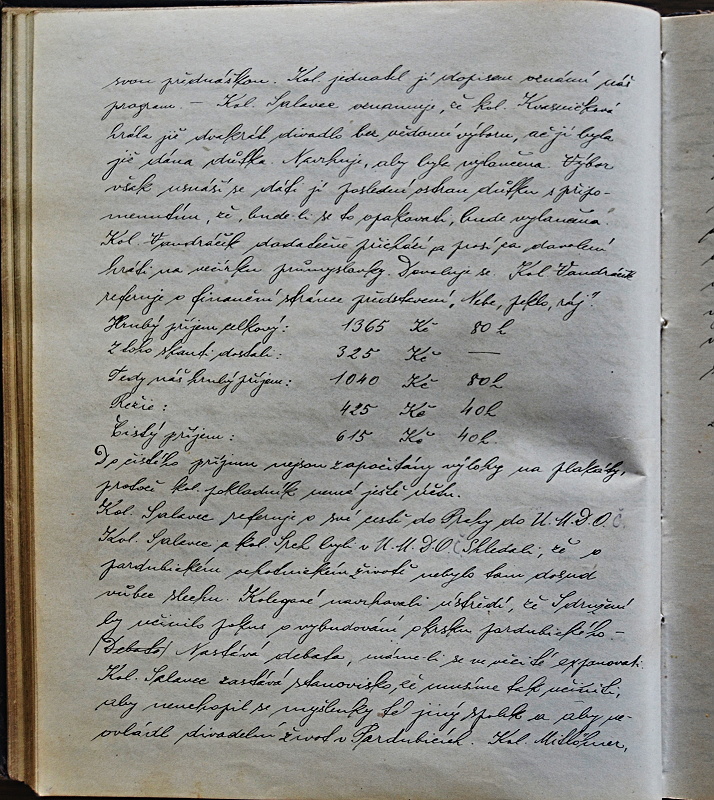 svou přednáškou. Kol. jednatel jí dopisem oznámí náš
program. — Kol. Salavec oznamuje, že kol. Kvasničková
hrála již dvakrát divadlo bez vědomí výboru, ač jí byla
již dána důtka. Navrhuje, aby byla vyloučena. Výbor
však usnáší se dáti jí poslední ostrou důtku s připo-
menutím, že, bude-li se to opakovati, bude vyloučena.
Kol. Vandráček dodatečně přichází a prosí za dovolení
hráti na večírku průmyslovky. Dovoluje se. Kol. Vandráček
referuje o finanční stránce představení „Nebe, peklo, ráj“.
Hrubý příjem celkový: 1365 Kč 80 h
Z toho skauti dostali: 325 Kč —
Tedy náš hrubý příjem: 1040 Kč 80 h
Režie: 425 Kč 40 h
Čistý příjem: 615 Kč 40 h
Do čistého příjmu nejsou započítány výlohy na plakáty,
protože kol. pokladník nemá ještě účtu.
Kol. Salavec referuje o své cestě do Prahy do U.M.D.O.Č.
Kol. Salavec a kol. Srch byli v U.M.D.O.Č. Shledali, že o
pardubickém ochotnickém životě nebylo tam dosud
vůbec slechu. Kolegové navrhovali ústředí, že Sdružení
by učinilo pokus o vybudování okrsku pardubického –
(Debata) Nastává debata, máme-li se ve věci té exponovati.
Kol. Salavec zastává stanovisko, že musíme tak učiniti,
aby neuchopil se myšlenky té jiný spolek a aby ne-
ovládl divadelní život v Pardubicích. Kol. Mitlöhner,